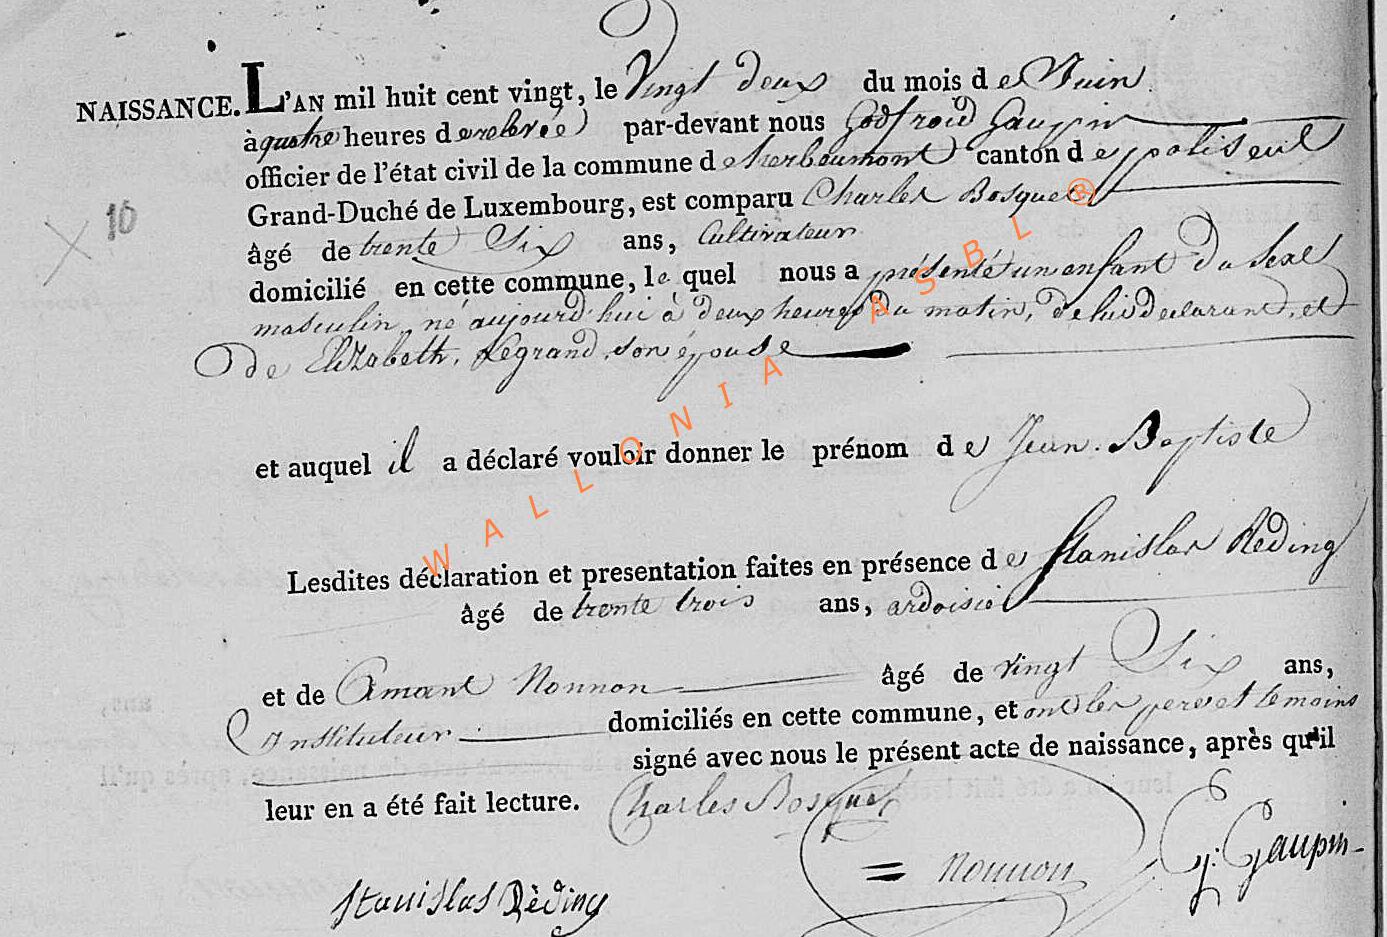 NAISSANCE. L'AN mil huit cent vingt, le Vingt deux du mois de Juin
à quatre heures de relevée par-devant nous Godfroid Gaupin
officier de l'état civil de la commune d'herbeumont canton de paliseul
Grand-Duché de Luxembourg, est comparu Charles Bosquet
10
âgé de trente Six ans, Cultivateur
domicilié en cette commune, le quel nous a présenté un enfant du Sexe
masculin, né aujourd'hui à deux heures du matin, de lui declarant, et
de Elizabeth, Legrand, son épouse
et auquel il a déclaré vouloir donner le prénom de Jean-Baptiste
Lesdites déclaration et presentation faites en présence de Stanislas Reding
âgé de trente trois ans, ardoisié
et de Amant Nonnon âgé de vingt Six ans,
Instituteur domiciliés en cette commune, et ont les pere et temoins
signé avec nous le présent acte de naissance, après qu'il
leur en a été fait lecture. Charles Bosquet
G: Gaupin
= Nonnon
Stanislas Rèding
WALLONIA ASBL ®